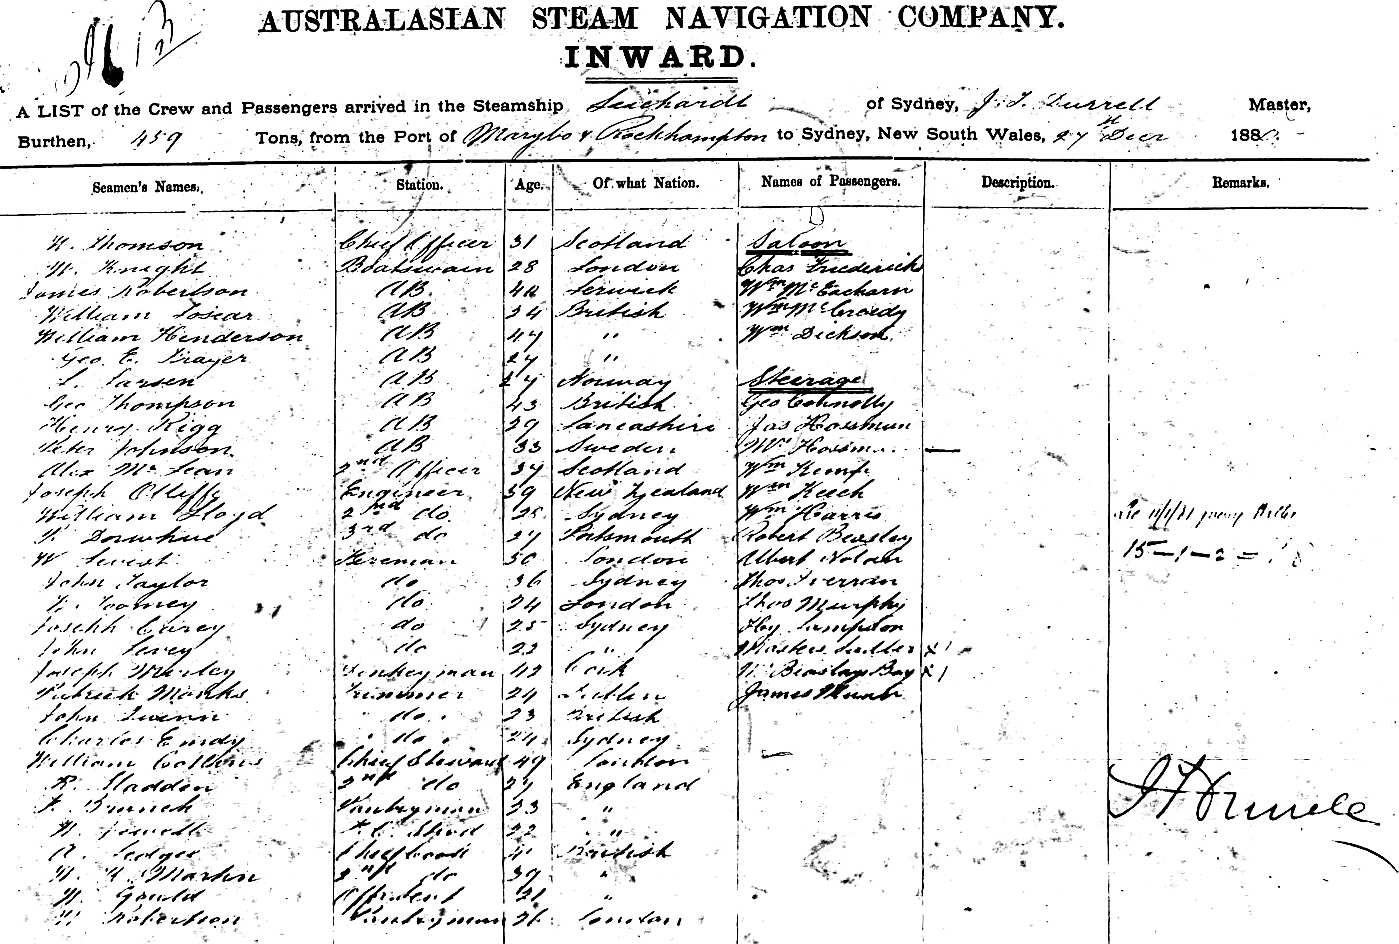 AUSTRALASIAN STEAM NAVIGATION COMPANY.
INWARD.
A LIST of the Crew and Passengers arrived in the Steamship Leichardt of Sydney, J. T. Durrell Master,
Burthen, 459 Tons, from the Port of Marybo & Rockhampton to Sydney, New South Wales, 27th Decr 1880.
Seamen's Names. Station. Age. Of what Nation. Names of Passengers. Description. Remarks.
W. Thomson Chief Officer 31 Scotland Saloon
W. Knight Boatswain 28 London Chas Friederich
James Robertson AB 42 Lerwick Wm McEacharn
William AB 34 British Wm McCready
William Henderson AB 47 " Wm Dickson
Geo. E. Frayer AB 27 "
L. Larsen AB 27 Norway Steerage
Geo Thompson AB 43 British Geo Connolly
Henry Rigg AB 29 Lancashire Jas Horsman
Peter Johnson AB 33 Sweden Mrs
Alex McLean 2nd Officer 37 Scotland Wm Kemp
Joseph Olliffe Engineer 39 New Zealand Wm Keech
William Lloyd 2nd do 25 Sydney Wm Harris
Donohue 3rd do 27 Portsmouth Robert Beasley
W Fireman 30 London Albert Nolan 15-1-2=
John Taylor do 36 Sydney Thos Verran
Toomey do 24 London Thos Murphy
Joseph Carey do 25 Sydney Hy Lampton
John Levey do 23 " Masters
Joseph Donkeyman 42 Cork Beasley Boy
Patrick Monks Trimmer 24 Dublin James
John Quinn do. 23 British
Charles do. 24 Sydney
William Collins Chief Steward 49 London
R. Madden 2nd do 27 England
F. Pantryman 23 "
W. 22 "
A. Ledger Chief Cook 41 British
W. Martin 2nd do 39 "
W. Gould 21 "
W. Robertson Pantryman 26 London